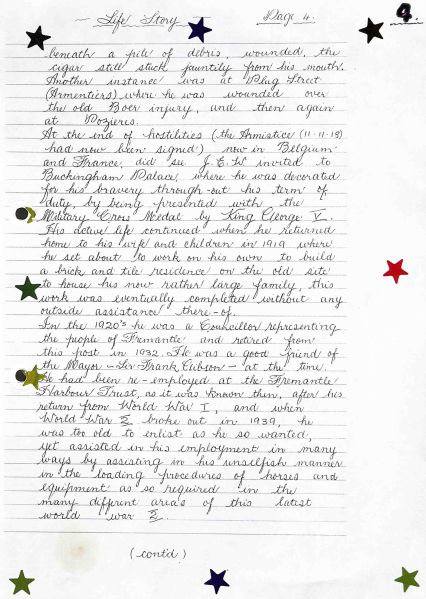 ~ Life Story ~ Page 4.
4.
beneath a pile of debris, wounded, the
cigar still stuck jauntily from his mouth.
Another instance was at Plug Street
(Armentiers) where he was wounded over
the old Boer injury, and then again
at Pozieres.
At the end of hostilities (the Armistice (11-11-18)
had now been signed) now in Belgium
and France, did see J.E.W invited to
Buckingham Palace, where he was decorated
for his bravery through-out his term of
duty, by being presented with the
Military Cross Medal by King George V.
His active life continued when he returned
home to his wife and children in 1919 where
he set about to work on his own to build
a brick and tile residence on the old site
to house his now rather large family, this
work was eventually completed without any
outside assistance there-of.
In the 1920's he was a Councillor representing
the people of Fremantle and retired from
this post in 1932. He was a good friend of
the Mayor - Sir Frank Gibson - at the time.
He had been re-employed at the Fremantle
Harbour Trust, as it was known then, after his
return from World War I, and when
World War II broke out in 1939, he
was too old to enlist as he so wanted,
yet assisted in his employment in many
ways by assisting in his unselfish manner
in the loading procedures of horses and
equipment as so required in the
many different area's of this latest
world war II.
(contd)